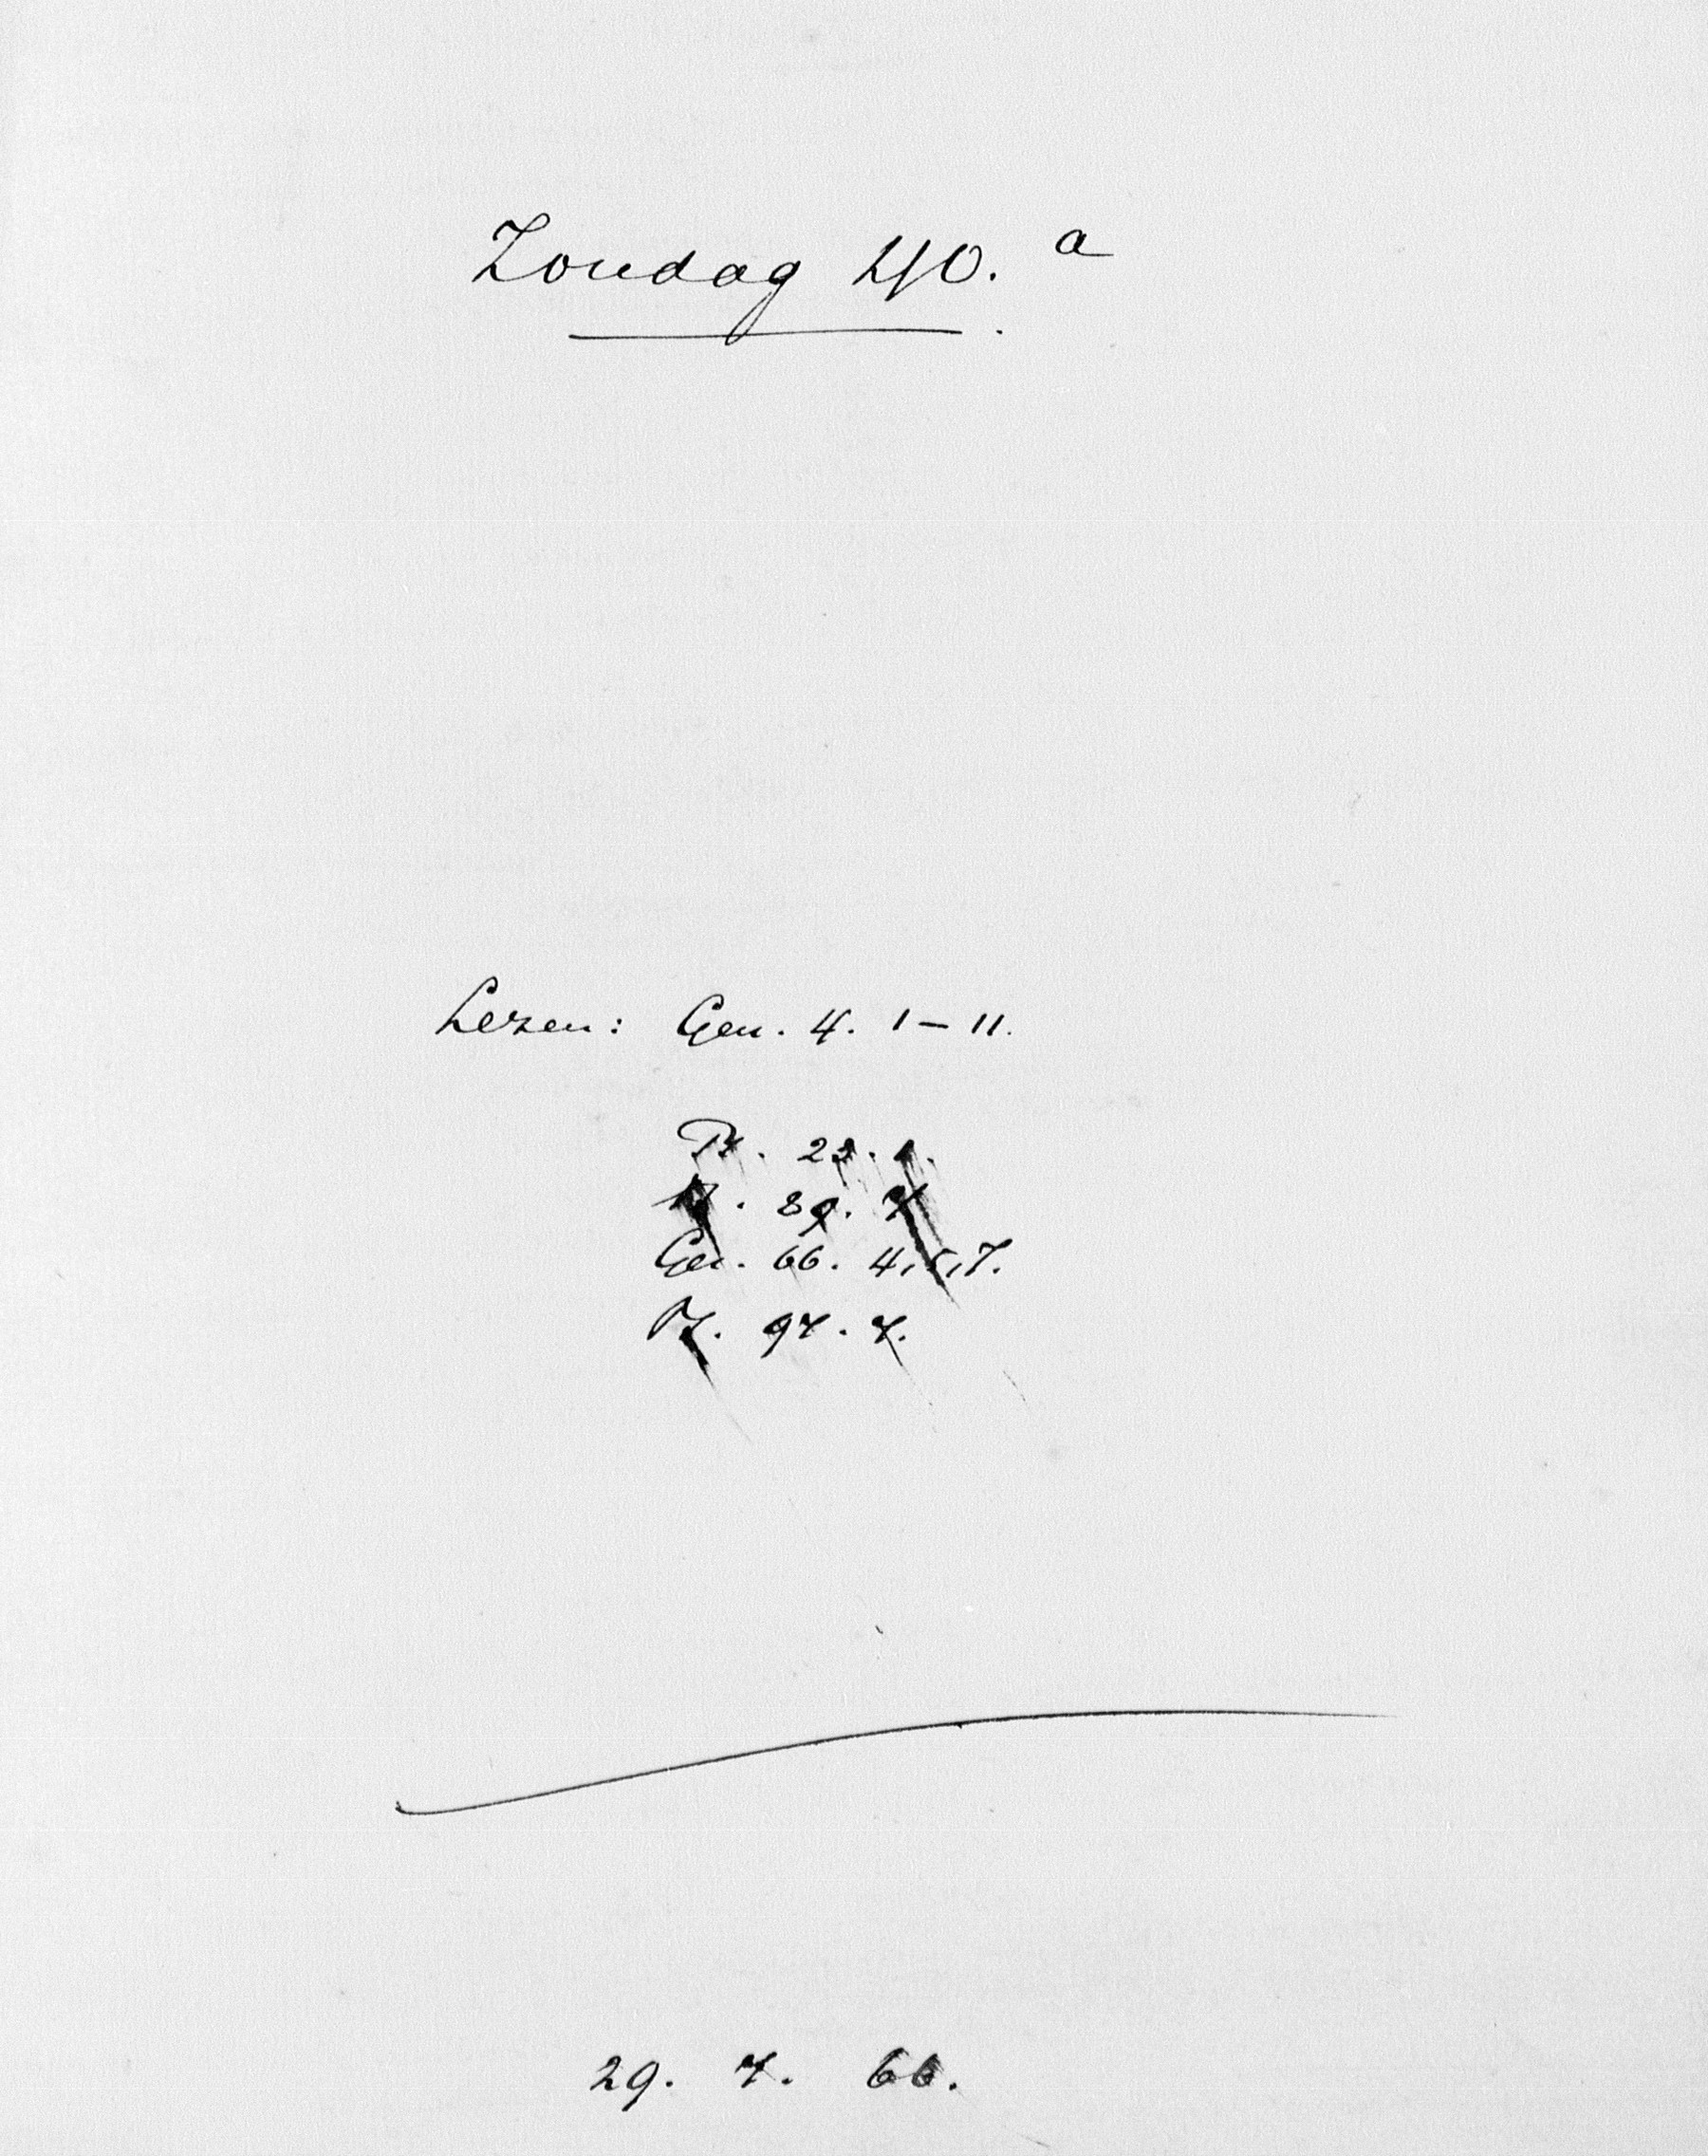 Zondag 40. a
Lezen: Gen. 4. 1-11.
Ps. 25.
Ps. 89. 7
Gez. 66. 4, 5, 7.
Ps. 97. 7.
29. 7. 66.